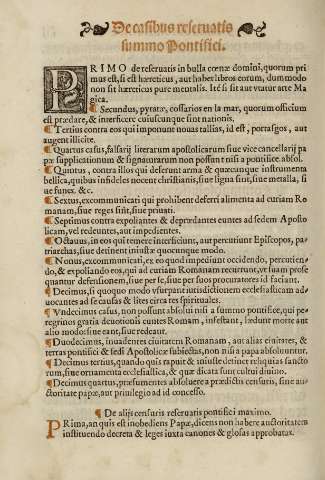 De casibus reseruatis
summo Pontifici.
PRIMO de reseruatis in bulla cœnæ domini, quorum pri
mus est, si est hæreticus, aut habet libros eorum, dummodo
non sit hæreticus pure mentalis. Ité si sit aut vtatur arte Ma
gica.
¶ Secundus, pyratæ, cossarios en la mar, quorum officium
est prædare, & interficere cuiuscunque sint nationis.
¶ Tertius contra eos qui imponunt nouas tallias, id est, portasgos, aut
augent illicite.
¶ Quartus casus, falsarij literarum apostolicarum siue vice cancellarij pa
pæ supplicationum & signaturarum non possunt nisi a pontifice absol.
¶ Quintus, contra illos qui deferunt arma & quæcunque instrumenta
bellica, quibus infideles nocent christianis, siue ligna sint, siue metalla, si
ue funes. &c.
¶ Sextus, excommunicati qui prohibent deferri alimenta ad curiam Ro
manam, siue reges sint, siue priuati.
¶ Septimus contra expoliantes & deprædantes euntes ad sedem Aposto
licam, vel redeuntes, aut impedientes.
¶ Octauus, in eos qui temere interficiunt, aut percutiunt Episcopos, pa
triarchas, siue detinent iniustæ quocunque modo.
¶ Nonus, excommunicati, ex eo quod impediunt occidendo, percutien-
do, & expoliando eos, qui ad curiam Romanam recurrunt, vt suam prose
quantur defensionem, siue per se, siue per suos procuratores id faciant.
¶ Decimus, si quoquo modo vsurpant iurisdictionem ecclesiasticam ad-
uocantes ad se causas & lites circa res spirituales.
¶ Vndecimus casus, non possunt absolui nisi a summo pontifice, qui pe-
regrinos gratia deuotionis euntes Romam, infestant, lædunt morte aut
alio modo siue eant, siue redeant.
¶ Duodecimus, inuadentes ciuitatem Romanam, aut alias ciuitates, &
terras pontifici & sedi Apostolicæ subiectas, non nisi a papa absoluuntur.
¶ Decimus tertius, quando quis rapuit & iniuste detinet reliquias sancto
rum, siue ornamenta ecclesiastica, & quæ dicata sunt cultui diuino.
¶ Decimus quartus, præsumentes absoluere a prædictis censuris, sine au-
ctoritate papæ, aut priuilegio ad id concesso.
¶ De alijs censuris reseruatis pontifici maximo.
Prima, an quis est inobediens Papæ, dicens non habere auctoritatem
instituendo decreta & leges iuxta canones & glosas approbatas.